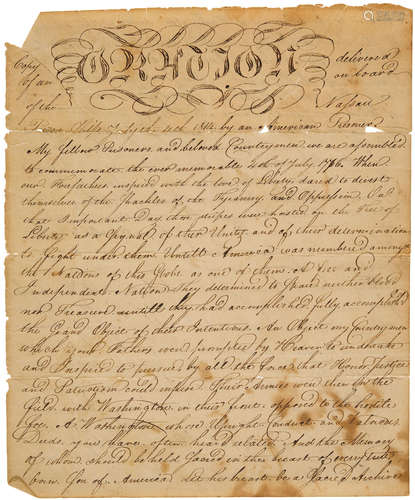 Copy ORATION delivered
of an on board
of the Nassau
Prison Ship July 4th 1814 by an American Prisoner
My fellow Prisoners and beloved Countrymen we are assembled
to commemorate the ever memorable 4th of July 1776. When
our Forefathers inspired with the love of Liberty, dared to devest
themselves of the Shackles of Tyranny and Oppression. I say
that Important Day their stripes were hoisted on the Tree of
Liberty as a Signal of their Unity and of their determination
to fight under them Untill America was numbered among
the Nations of this Globe as one of them. A free and
Independent Nation They determined to Spare neither blood
nor Treasure untill they had accomplished fully accomplish
the Grand Object of their Intentions. An Object my Countrymen
which your Fathers were prompted by Heaven to undertake
and Inspired to pursue by all the force that Honor Justice
and Patriotism could infuse Their Armies were then in the
field with Washington in their front opposed to the hostile
foe. A Washington whose Upright Conduct and Virtuous
Deeds you have often heard related And the Memory
of whom should be held Sacred in the breast of every true
born Son of America let his heart be a Sacred Archive